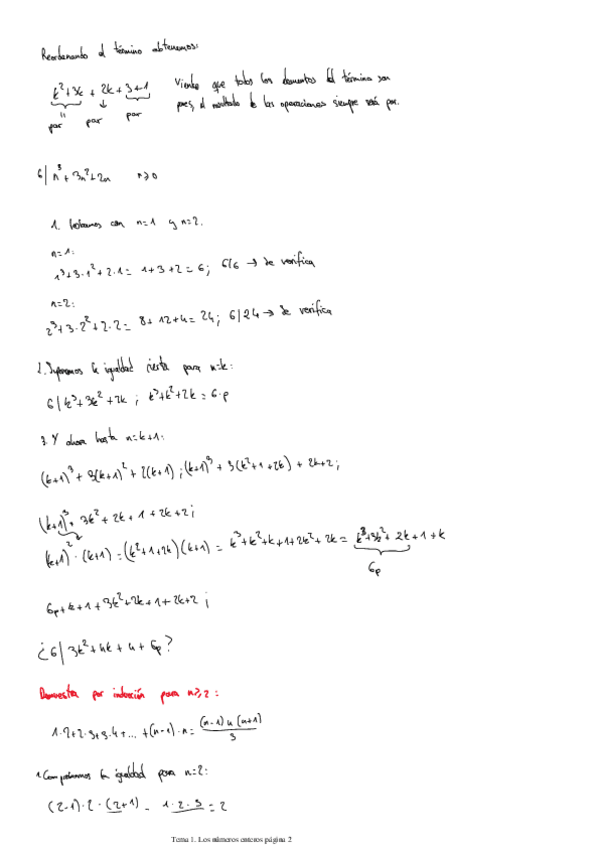 Reordenando el término obtenemos:
k²+3k + 2k + 3+1 Viendo que todos los elementos del término son
par par par pares, el resultado de las operaciones siempre será par.
6 | n³ + 3n² + 2n n ≥ 0
1. Probamos con n=1 y n=2.
n=1:
1³+3·1²+2·1 = 1+3+2 = 6; 6/6 → Se verifica
n=2:
2³+3·2²+2·2 = 8+12+4 = 24; 6|24 → Se verifica
2. Suponemos la igualdad cierta para n=k:
6 | k³+3k²+2k ; k³+k²+2k = 6·p
3. Y ahora hasta n=k+1:
(k+1)³ + 3(k+1)² + 2(k+1) ; (k+1)³ + 3(k²+1+2k) + 2k+2;
(k+1)³ + 3k² + 2k + 1 + 2k+2;
(k+1)² · (k+1) = (k²+1+2k)(k+1) = k³+k²+k+1+2k²+2k = k³+3k²+2k+1+k
6p
6p+k+1+3k²+2k+1+2k+2 ;
¿6 | 3k²+4k+4+6p?
Demuestra por inducción para n≥2:
1·2+2·3+3·4+...+(n-1)·n = (n-1)n(n+1)/3
1. Comprobamos la igualdad para n=2:
(2-1)·2·(2+1) = 1·2·3 = 2
Tema 1. Los números enteros página 2